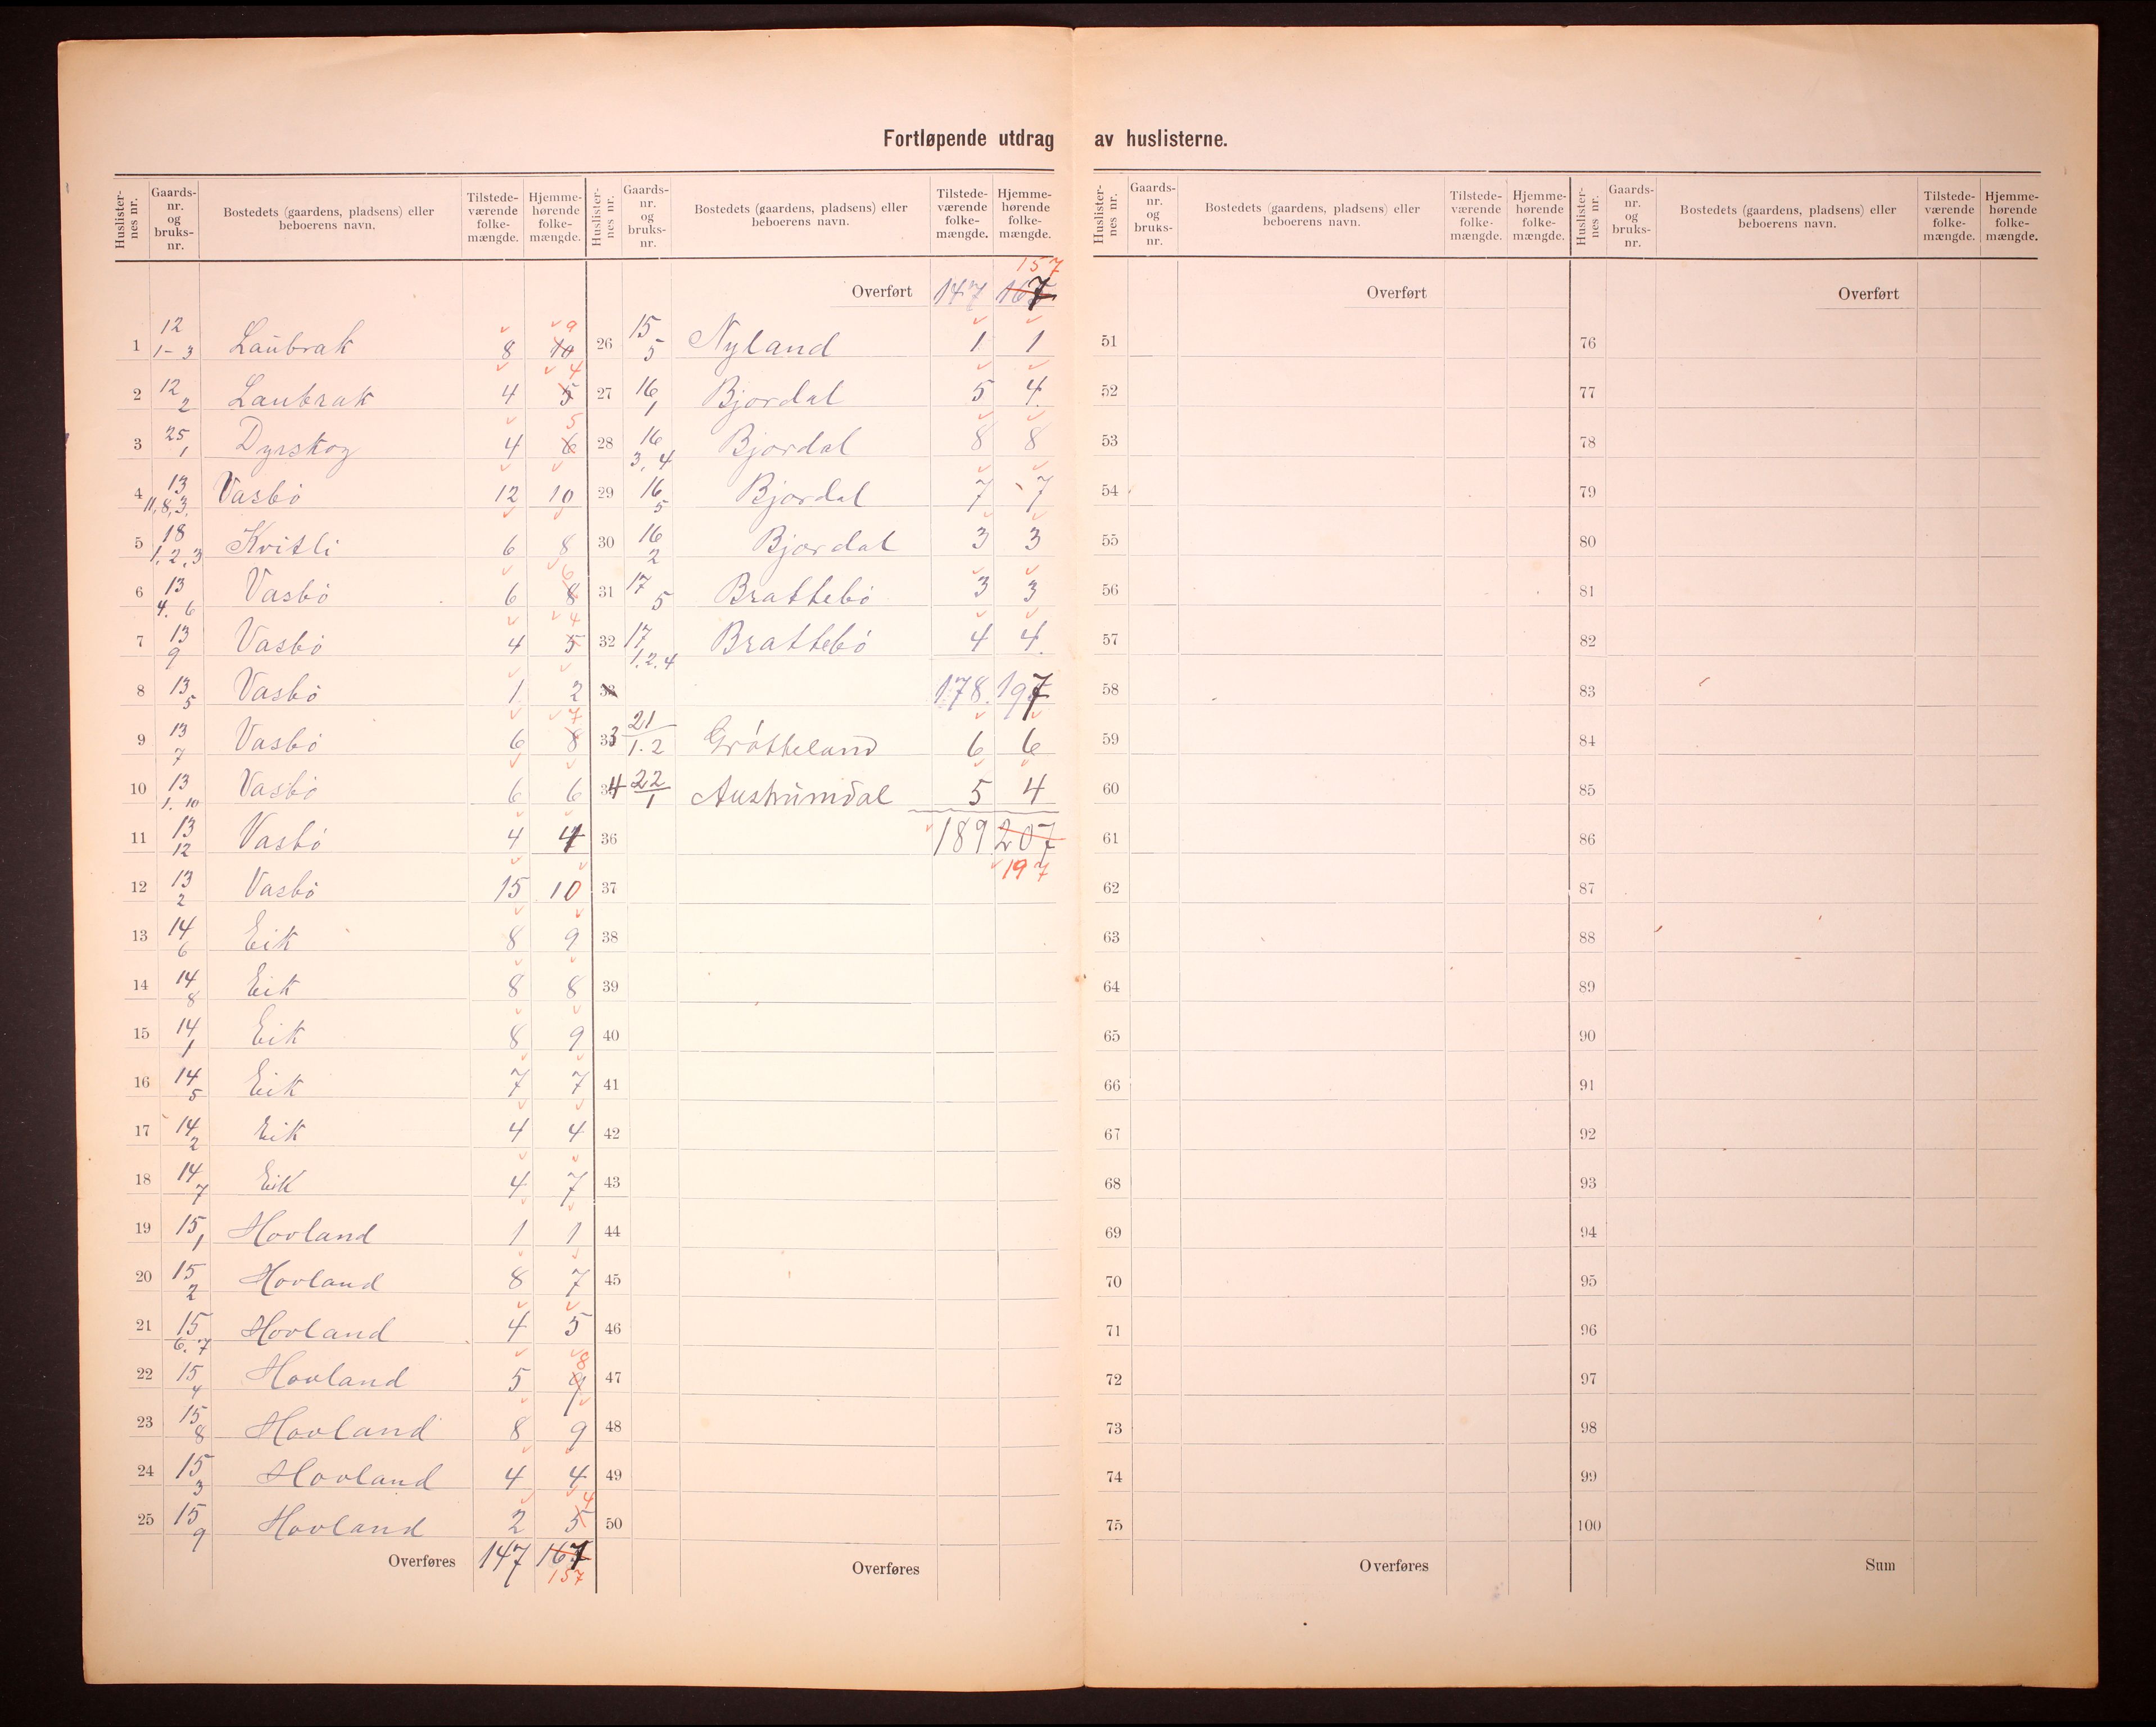 Fortløpende utdrag av huslisterne.
Huslisternes nr. Gaards-nr. og bruks-nr. Bostedets (gaardens, pladsens) eller beboerens navn. Tilstede-værende folke-mængde. Hjemme-hørende folke-mængde.
1 12 1-3 Laubrak 8 10 9
2 12 2 Laubrak 4 5 4
3 25 1 Dyrskog 4 6 5
4 13 11,8,3. Vasbø 12 10
5 18 1.2.3 Kvitli 6 8
6 13 4. 6 Vasbø 6 8 6
7 13 9 Vasbø 4 5 4
8 13 5 Vasbø 1 2
9 13 7 Vasbø 6 8 7
10 13 1. 10 Vasbø 6 6
11 13 12 Vasbø 4 4
12 13 2 Vasbø 15 10
13 14 6 Eik 8 9
14 14 8 Eik 8 8
15 14 1 Eik 8 9
16 14 5 Eik 7 7
17 14 2 Eik 4 4
18 14 7 Eik 4 7
19 15 1 Hovland 1 1
20 15 2 Hovland 8 7
21 15 6. 7 Hovland 4 5
22 15 4 Hovland 5 9 8
23 15 8 Hovland 8 9
24 15 3 Hovland 4 4
25 15 9 Hovland 2 5 4
Overføres 147 167
157
Huslisternes nr. Gaards-nr. og bruks-nr. Bostedets (gaardens, pladsens) eller beboerens navn. Tilstede-værende folke-mængde. Hjemme-hørende folke-mængde.
157
Overført 147 167
26 15 5 Nyland 1 1
27 16 1 Bjordal 5 4
28 16 3, 4 Bjordal 8 8
29 16 5 Bjordal 7 7
30 16 2 Bjordal 3 3
31 17 5 Brattebø 3 3
32 17 1.2.4 Brattebø 4 4
33 178 197
33 21 1.2 Grøtteland 6 6
34 22 1 Austrumdal 5 4
36 189 207
37 197
38
39
40
41
42
43
44
45
46
47
48
49
50
Overføres
Huslisternes nr. Gaards-nr. og bruks-nr. Bostedets (gaardens, pladsens) eller beboerens navn. Tilstede-værende folke-mængde. Hjemme-hørende folke-mængde.
Overført
51
52
53
54
55
56
57
58
59
60
61
62
63
64
65
66
67
68
69
70
71
72
73
74
75
Overføres
Huslisternes nr. Gaards-nr. og bruks-nr. Bostedets (gaardens, pladsens) eller beboerens navn. Tilstede-værende folke-mængde. Hjemme-hørende folke-mængde.
Overført
76
77
78
79
80
81
82
83
84
85
86
87
88
89
90
91
92
93
94
95
96
97
98
99
100
Sum